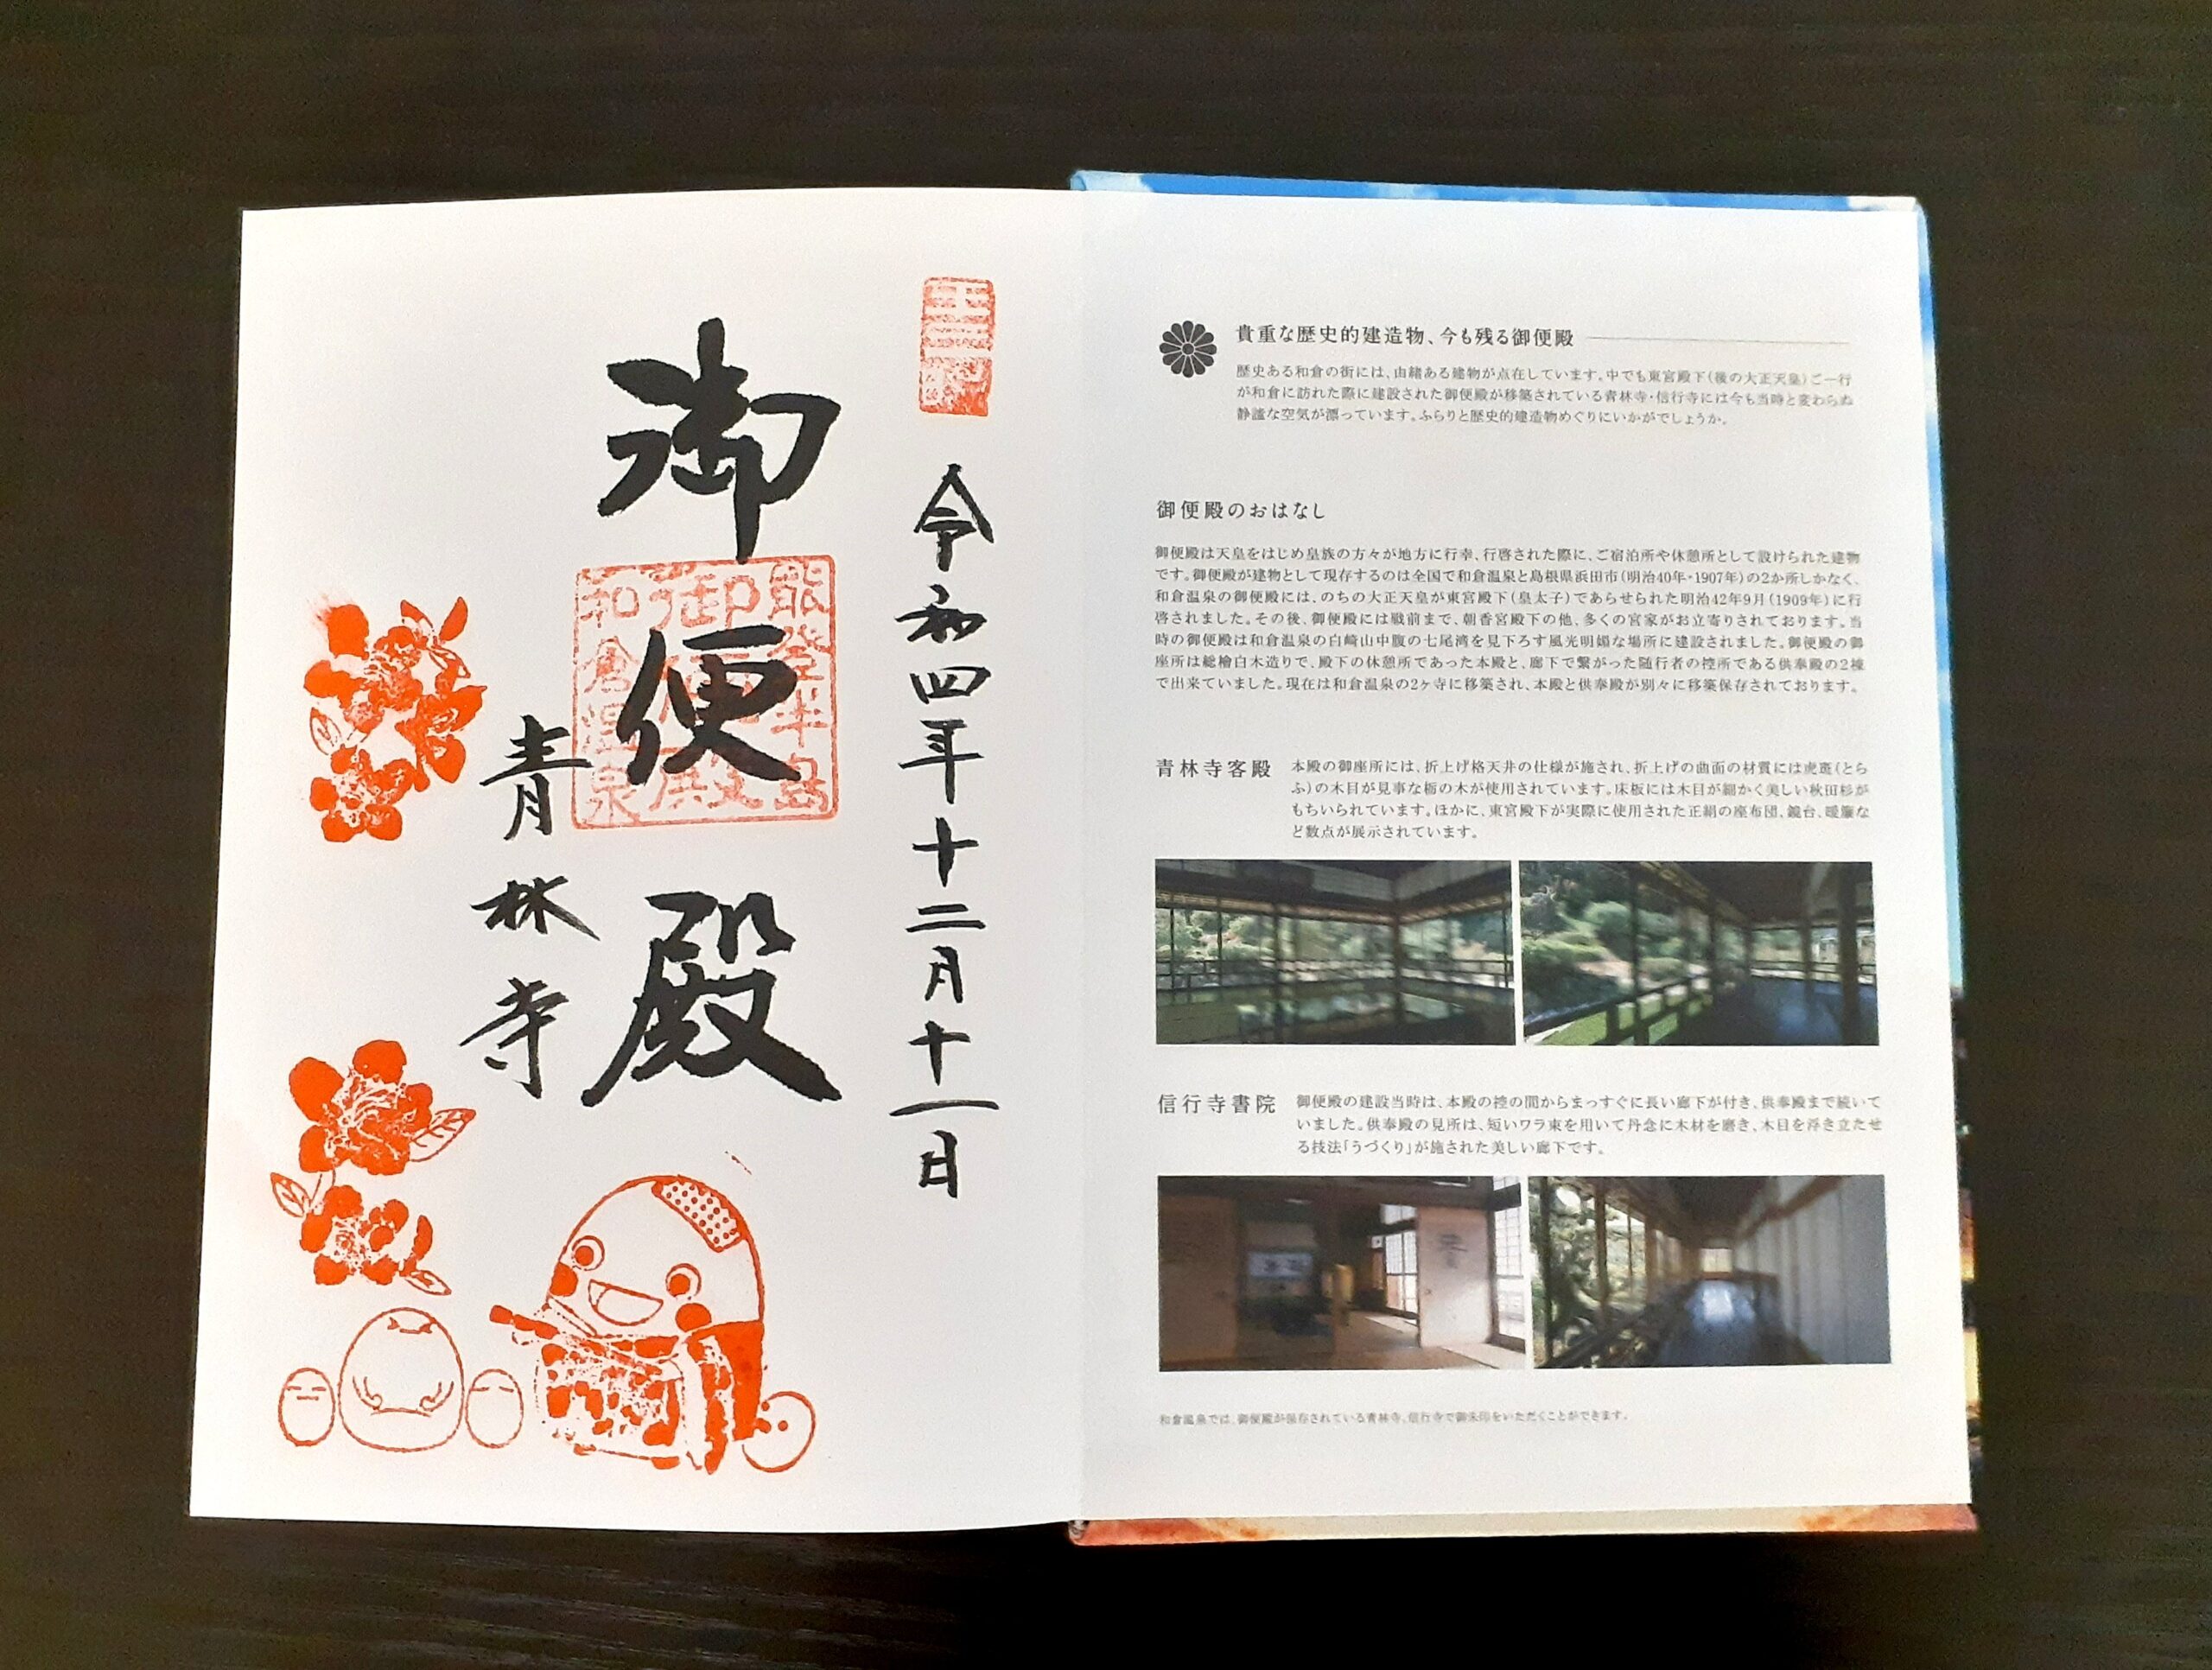 令和四年十二月十一日
御便殿
能登半島
御便殿
和倉温泉
青林寺
貴重な歴史的建造物、今も残る御便殿
歴史ある和倉の街には、由緒ある建物が点在しています。中でも東宮殿下(後の大正天皇)ご一行
が和倉に訪れた際に建設された御便殿が移築されている青林寺・信行寺には今も当時と変わらぬ
静謐な空気が漂っています。ふらりと歴史的建造物めぐりにいかがでしょうか。
御便殿のおはなし
御便殿は天皇をはじめ皇族の方々が地方に行幸、行啓された際に、ご宿泊所や休憩所として設けられた建物
です。御便殿が建物として現存するのは全国で和倉温泉と島根県浜田市(明治40年・1907年)の2か所しかなく、
和倉温泉の御便殿には、のちの大正天皇が東宮殿下(皇太子)であらせられた明治42年9月(1909年)に行
啓されました。その後、御便殿には戦前まで、朝香宮殿下の他、多くの宮家がお立寄りされております。当
時の御便殿は和倉温泉の白崎山中腹の七尾湾を見下ろす風光明媚な場所に建設されました。御便殿の御
座所は総檜白木造りで、殿下の休憩所であった本殿と、廊下で繋がった随行者の控所である供奉殿の2棟
で出来ていました。現在は和倉温泉の2ヶ寺に移築され、本殿と供奉殿が別々に移築保存されております。
青林寺客殿
本殿の御座所には、折上げ格天井の仕様が施され、折上げの曲面の材質には虎斑(とら
ふ)の木目が見事な栃の木が使用されています。床板には木目が細かく美しい秋田杉が
もちいられています。ほかに、東宮殿下が実際に使用された正絹の座布団、鏡台、暖簾な
ど数点が展示されています。
信行寺書院
御便殿の建設当時は、本殿の控の間からまっすぐに長い廊下が付き、供奉殿まで続いて
いました。供奉殿の見所は、短いワラ束を用いて丹念に木材を磨き、木目を浮き立たせ
る技法「うづくり」が施された美しい廊下です。
和倉温泉では、御便殿が保存されている青林寺、信行寺で御朱印をいただくことができます。